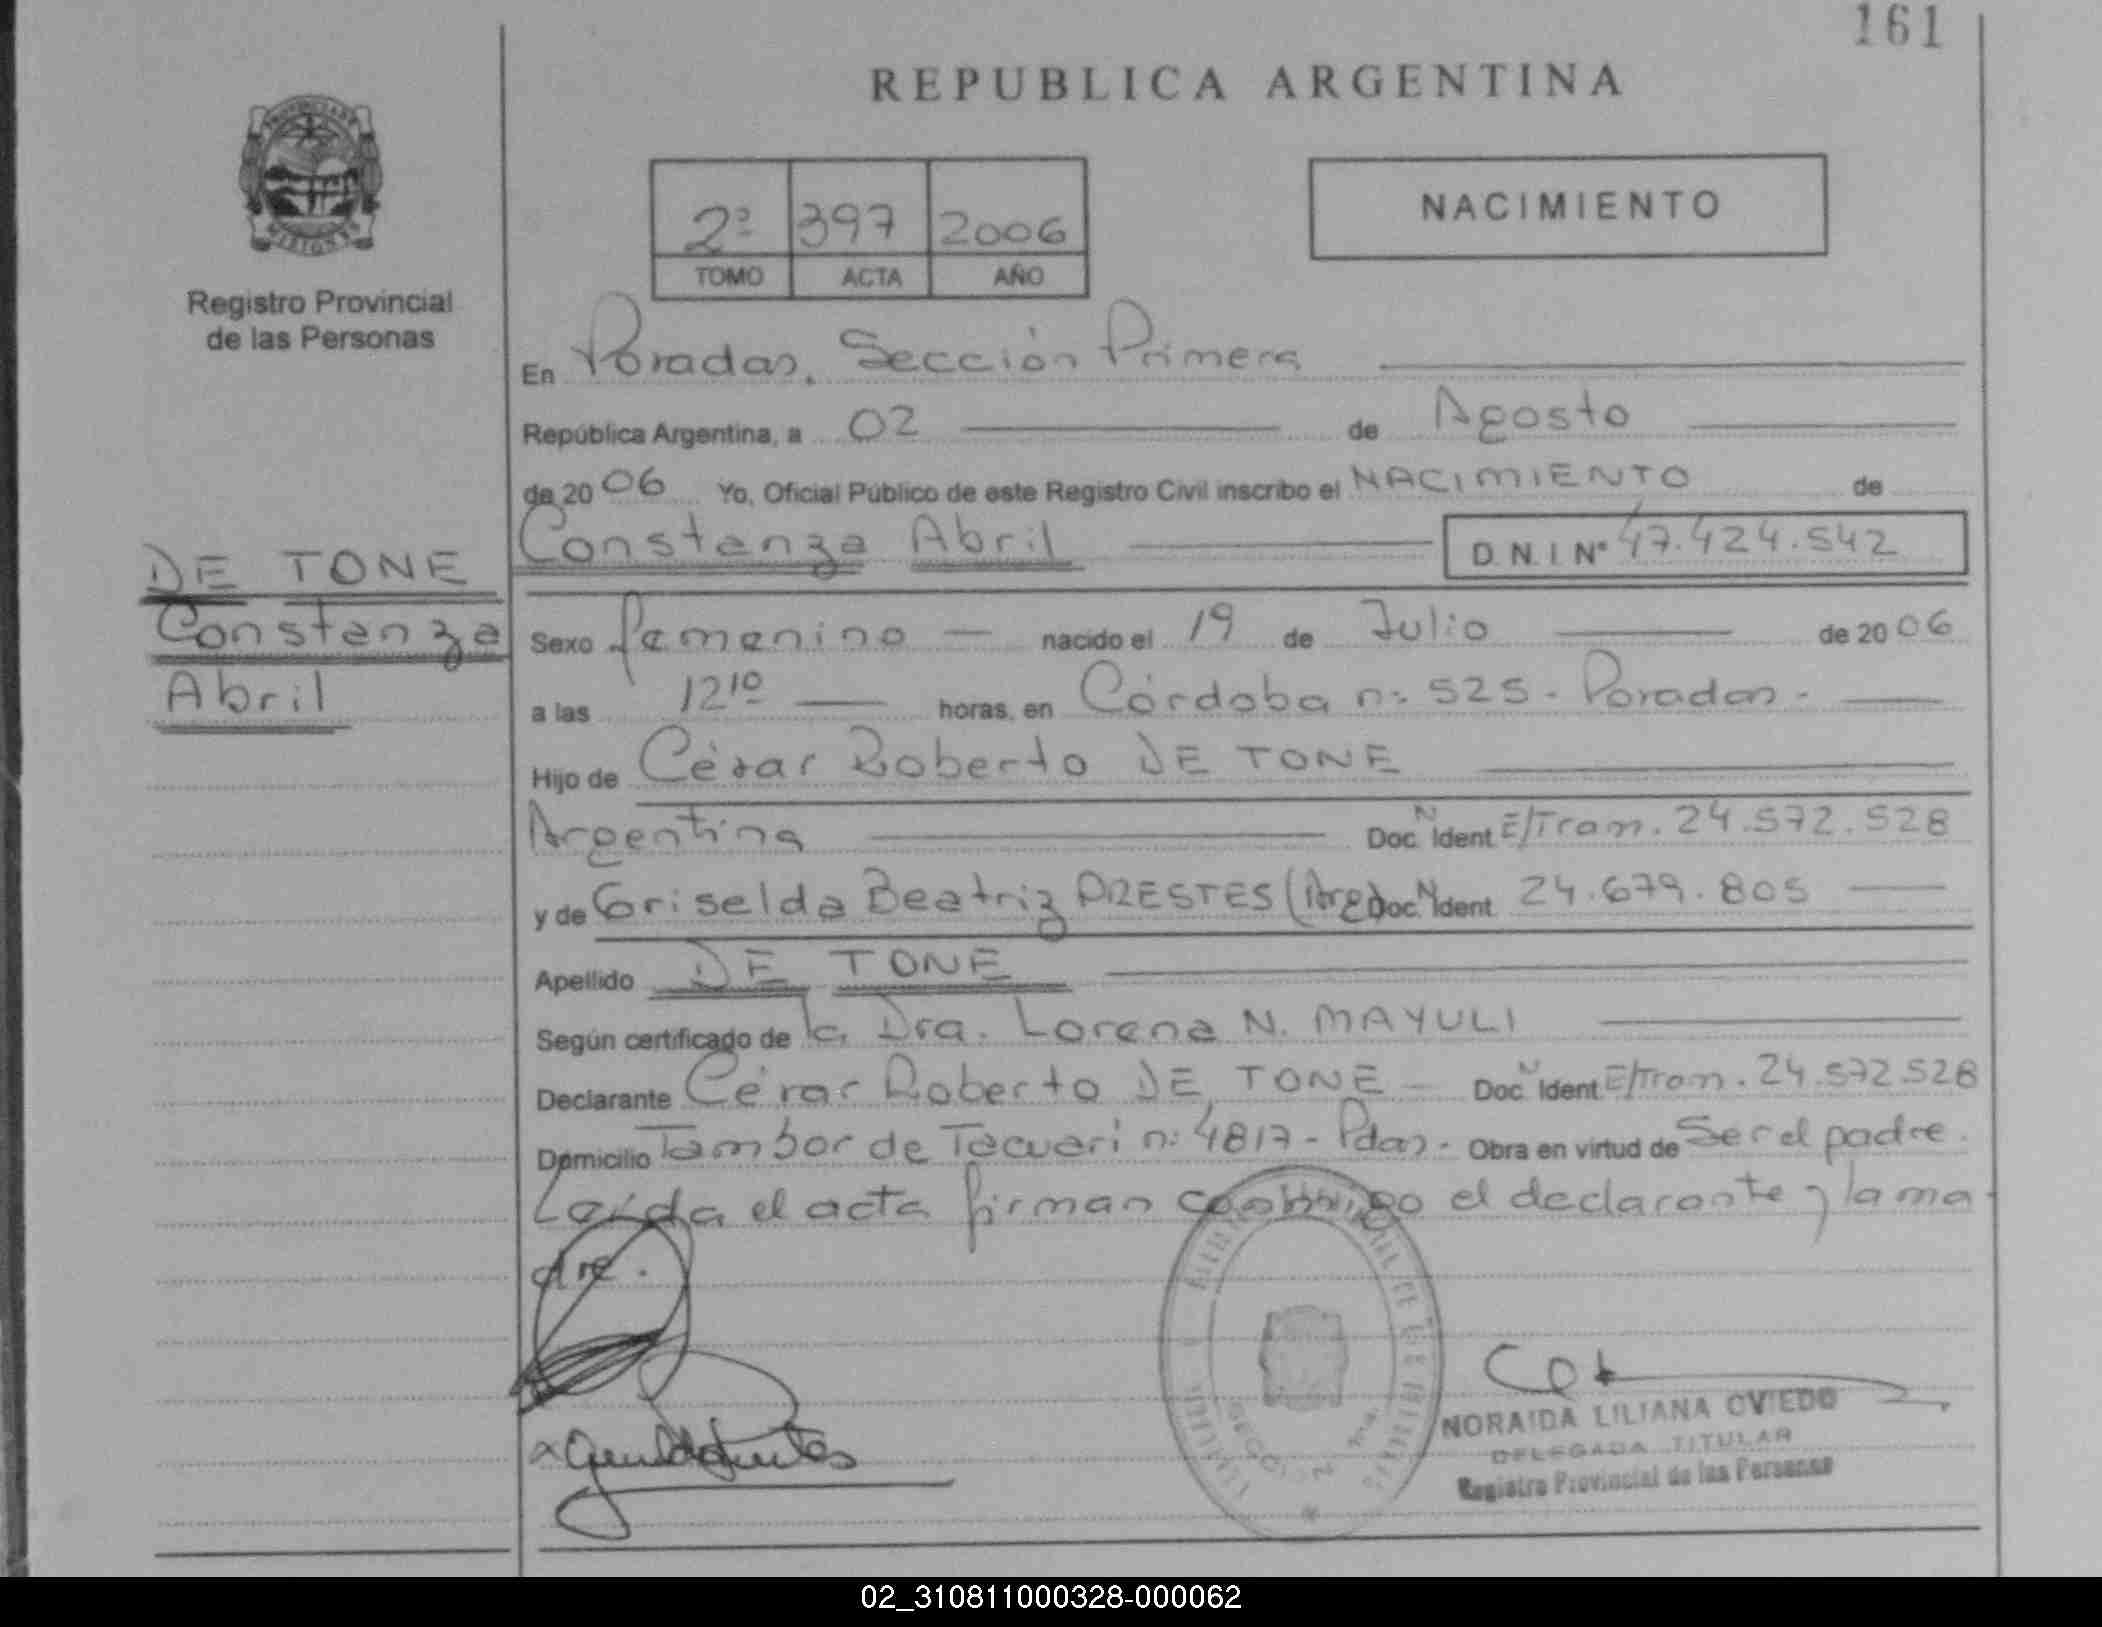 161
REPUBLICA ARGENTINA
2º 397 2006
TOMO ACTA AÑO
NACIMIENTO
Registro Provincial
de las Personas
En Posadas, Sección Primera
República Argentina, a 02 de Agosto
de 2006 Yo, Oficial Público de este Registro Civil inscribo el NACIMIENTO de
Constanza Abril D.N.I Nº 47.424.542
DE TONE
Constanza
Abril
Sexo femenino nacido el 19 de Julio de 2006
a las 12¹⁰ horas, en Córdoba nº 525 - Posadas -
Hijo de César Roberto DE TONE
Argentina Doc. N Ident E/Tram. 24.572.528
y de Griselda Beatriz PRESTES (Arg) Doc. N Ident 24.679.805
Apellido DE TONE
Según certificado de la Dra. Lorena N. MAYULI
Declarante César Roberto DE TONE Doc. N Ident E/Tram. 24.572.528
Domicilio Tambor de Tacuarí nº 4817 - Pdas - Obra en virtud de Ser el padre.
Leída el acta firman conmigo el declarante y la ma
dre.
NORAIDA LILIANA OVIEDO
DELEGADA TITULAR
Registro Provincial de las Personas
02_310811000328-000062